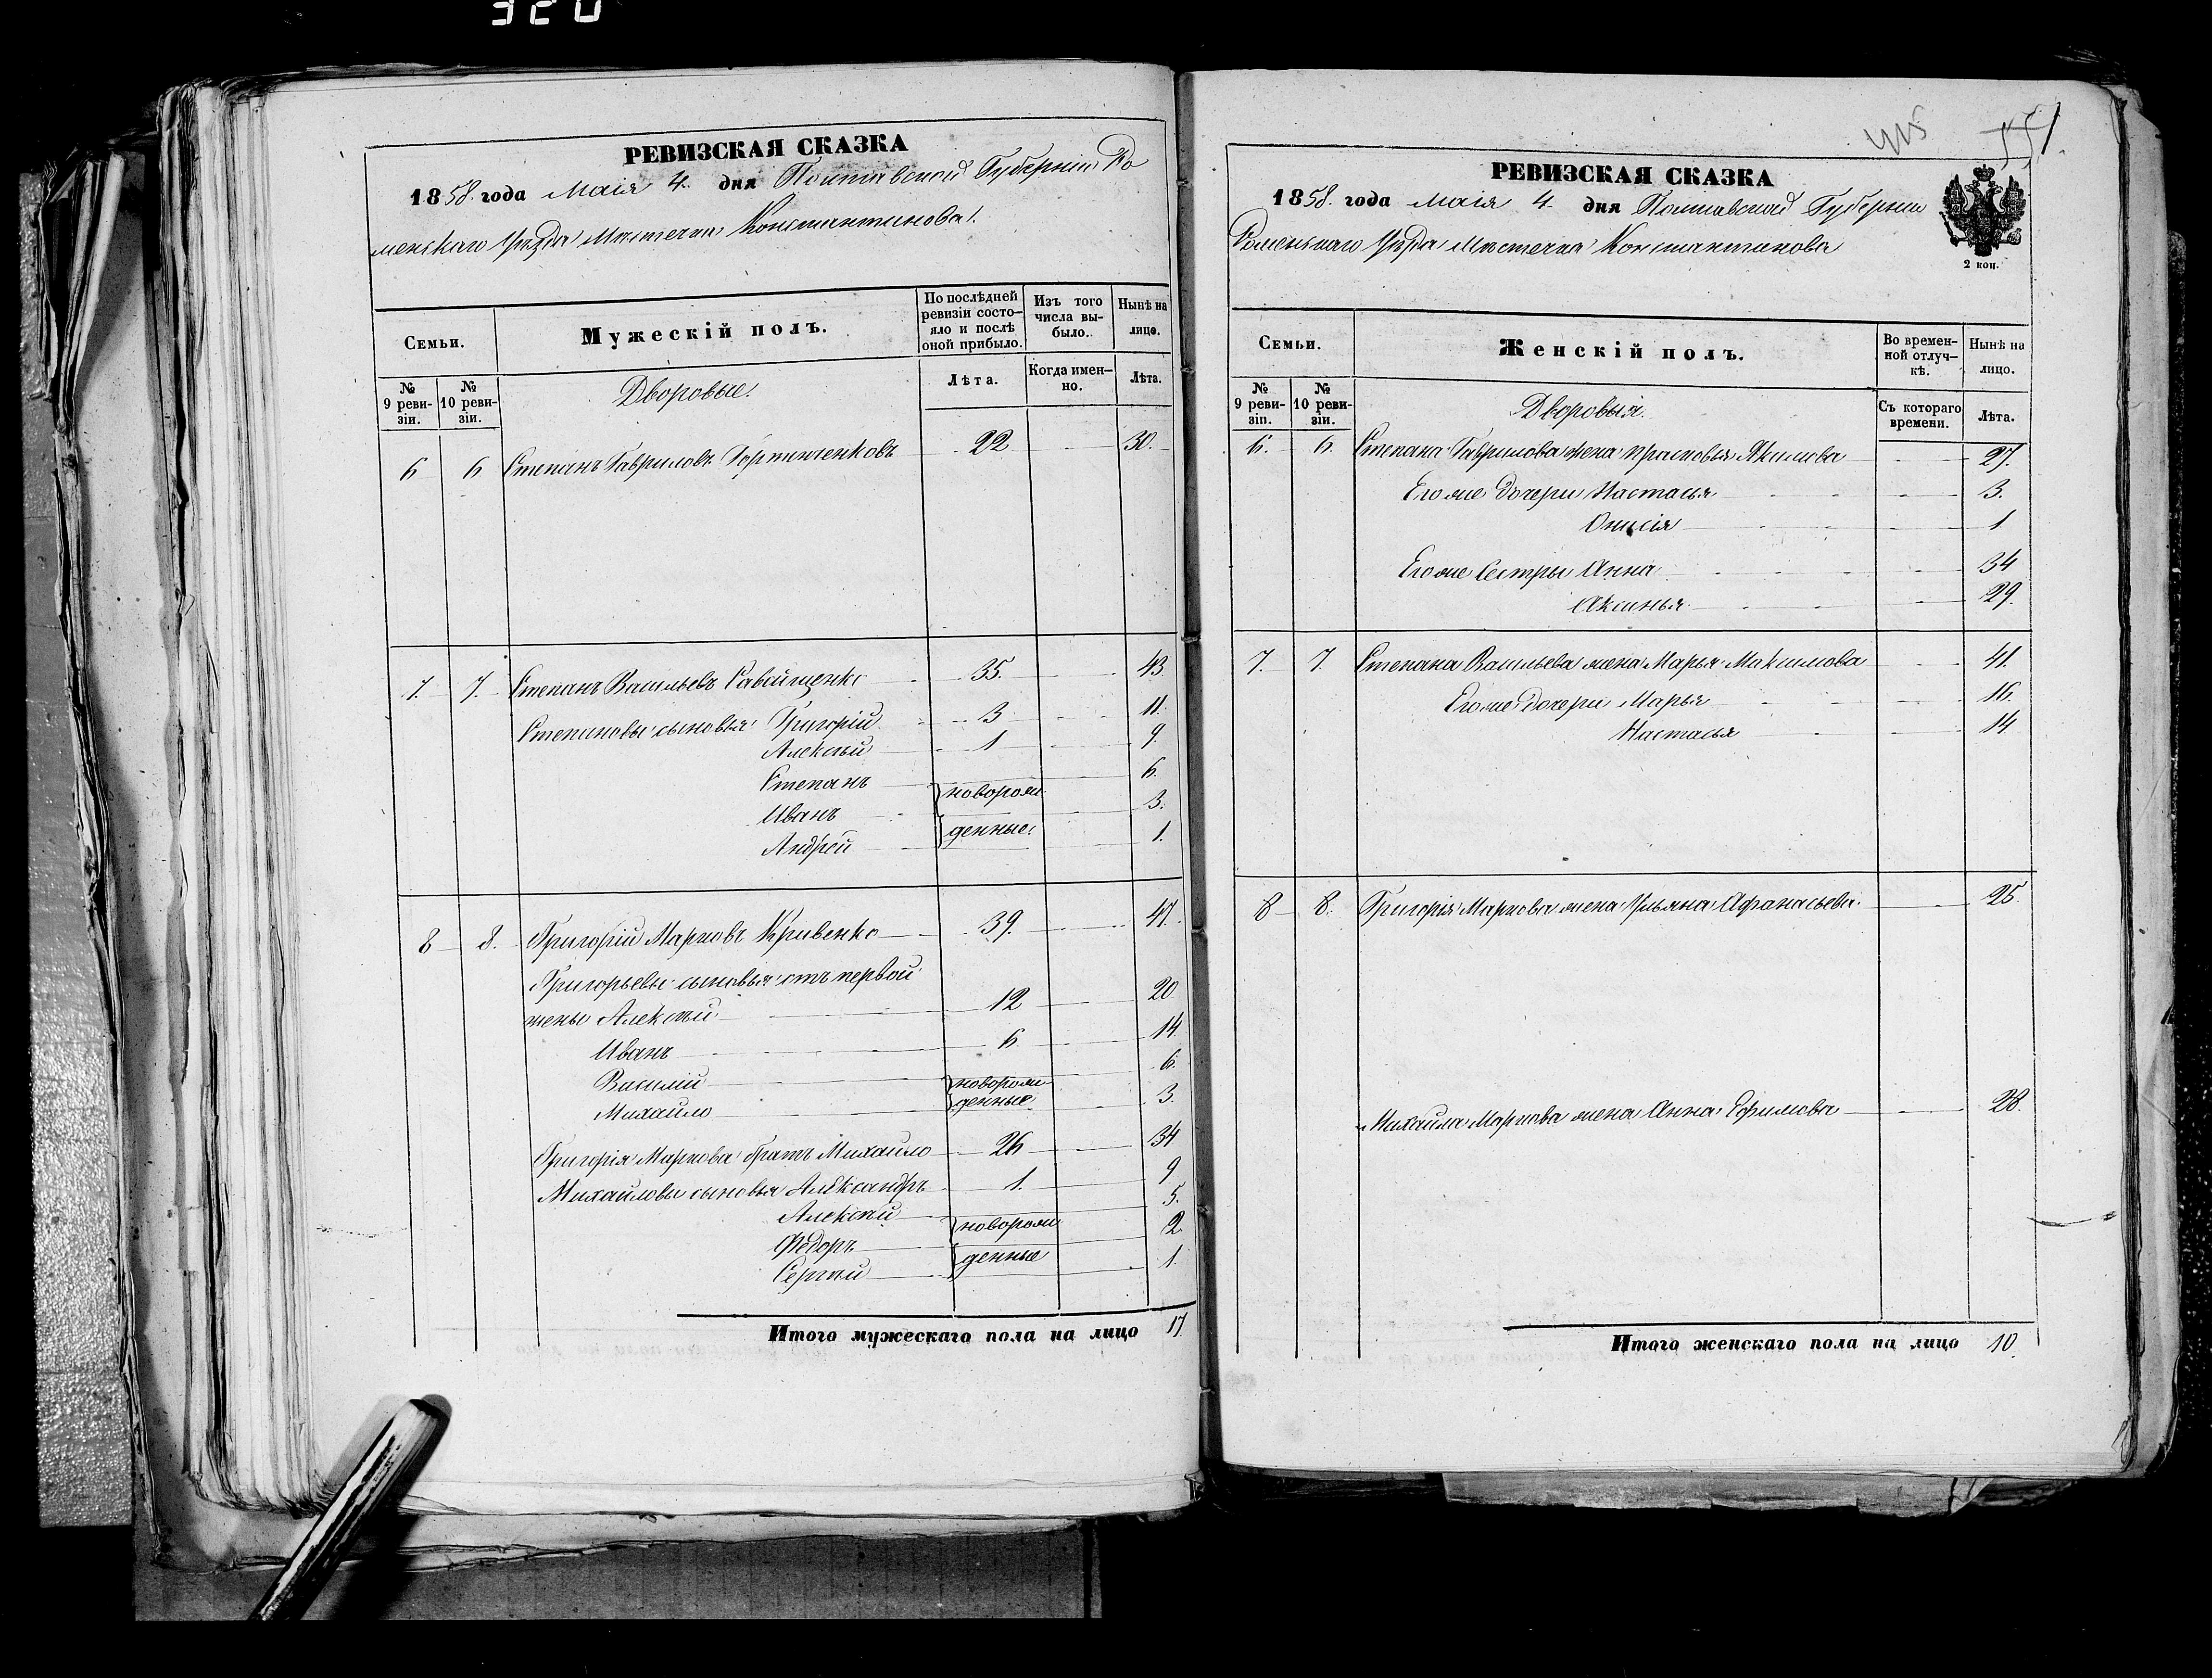 320
РЕВИЗСКАЯ СКАЗКА
1858. года Маія 4. дня Полтавской Губерніи Ро
менскаго Уѣзда Мѣстечка Константинова.
Семьи.
Мужескій полъ.
По послѣдней ревизіи состо-яло и послѣ оной прибыло.
Изъ того числа вы-было.
Нынѣ на лицо.
№ 9 реви-зіи.
№ 10 реви-зіи.
Дворовые.
Лѣта.
Когда имен-но.
Лѣта.
6 6 Степанъ Гавриловъ 22 30.
7. 7. Степанъ Васильевъ 35. 43.
Степановы сыновья Григорій 3 11.
Алексѣй 1 9.
Степанъ 6.
новорож
Иванъ 3.
денные.
Андрей 1.
8 8. Григорій Марковъ Кривенко 39. 47.
Григорьевы сыновья отъ первой
жены Алексѣй 12 20
Иванъ 6 14
Василій новорож 6.
Михайло денные 3.
Григорія Маркова братъ Михайло 26 34
Михайловы сыновья Александръ 1. 9
Алексѣй 5.
новорож
Федоръ 2
денные
Сергѣй 1.
Итого мужескаго пола на лицо 17.
551.
РЕВИЗСКАЯ СКАЗКА
1858. года Маія 4. дня Полтавской Губерніи
Роменскаго Уѣзда Мѣстечка Константинова
2 коп.
Семьи.
Женскій полъ.
Во времен-ной отлуч-кѣ.
Нынѣ на лицо.
№ 9 реви-зіи.
№ 10 реви-зіи.
Дворовыя.
Съ котораго времени.
Лѣта.
6. 6. Степана Гаврилова жена Прасковья Якимова 27.
Его же дочери Настасья 3.
Онисія 1.
Его же Сестры Анна 34
Аксинья 29.
7. 7. Степана Васильева жена Марья Максимова 41.
Его же дочери Марья 16.
Настасья 14
8 8. Григорія Маркова жена Ульяна Афанасьева. 25.
Михайла Маркова жена Анна Ефимова 28.
Итого женскаго пола на лицо 10.